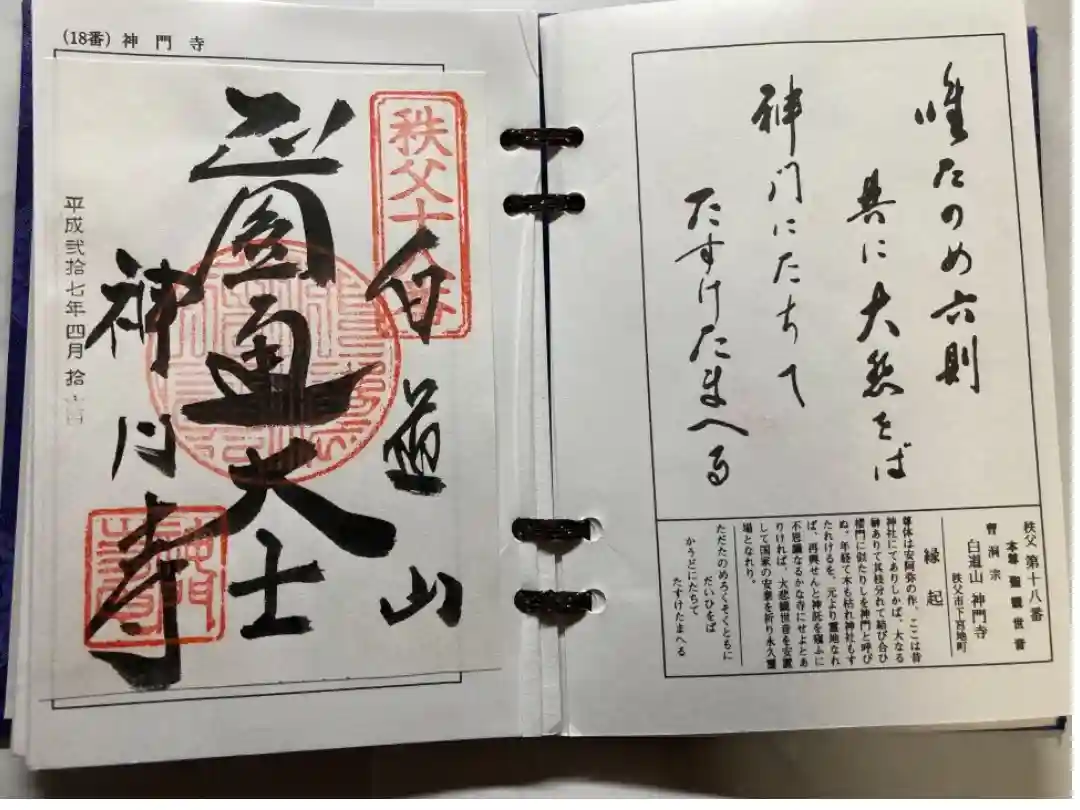 唯たのめ六則
共に大悲をば
神門にたちて
たすけたまへる
秩父 第十八番
本尊 聖觀世音
曹洞宗
白道山 神門寺
秩父市下宮地町
縁起
尊体は安阿弥の作、ここは昔
神社にてありしかば、大なる
榊ありて其枝分れて結び合ひ
楼門に似たりしを神門と呼び
ぬ。年経て木も枯れ神社もす
たれけるを、元より霊地なれ
ば、再興せんと神託を窺ふに
不思議なるかな寺にせよとあ
りければ、大悲観世音を安置
して国家の安泰を祈り永久霊
場となれり。
ただたのめろくそくともに
だいひをば
かうどにたちて
たすけたまへる
(18番) 神門寺
秩父十八番
白道山
圓通大士
神門寺
平成弐拾七年四月拾日